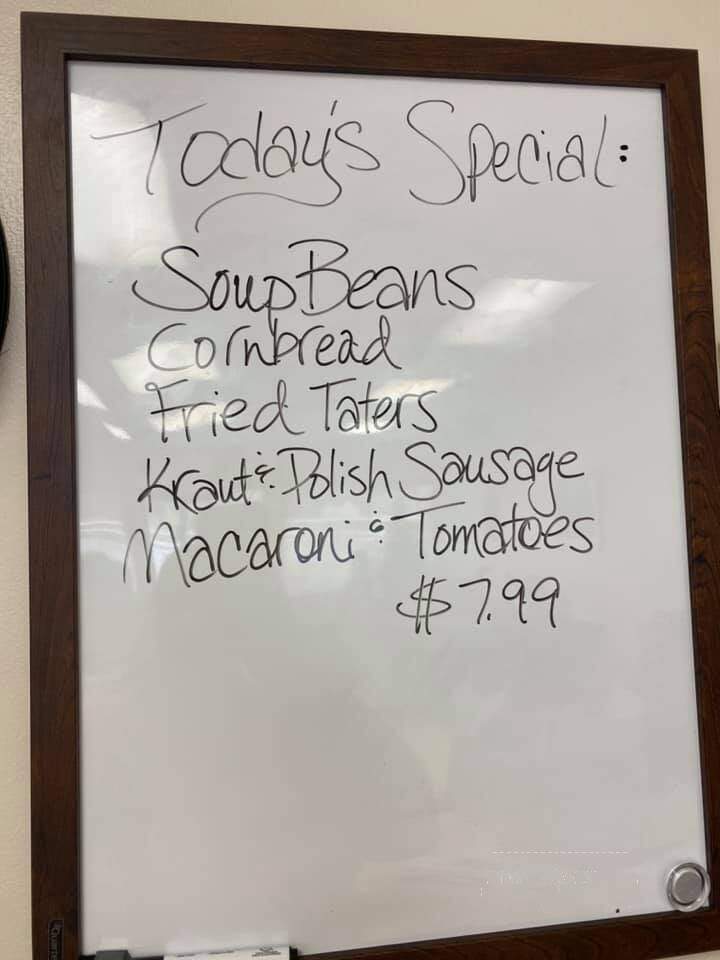 Today's Special:
Soup Beans
Cornbread
Fried Taters
Kraut & Polish Sausage
Macaroni & Tomatoes
$7.99